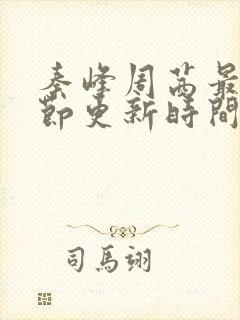 秦峰周茜最
節更新時間
司馬翊